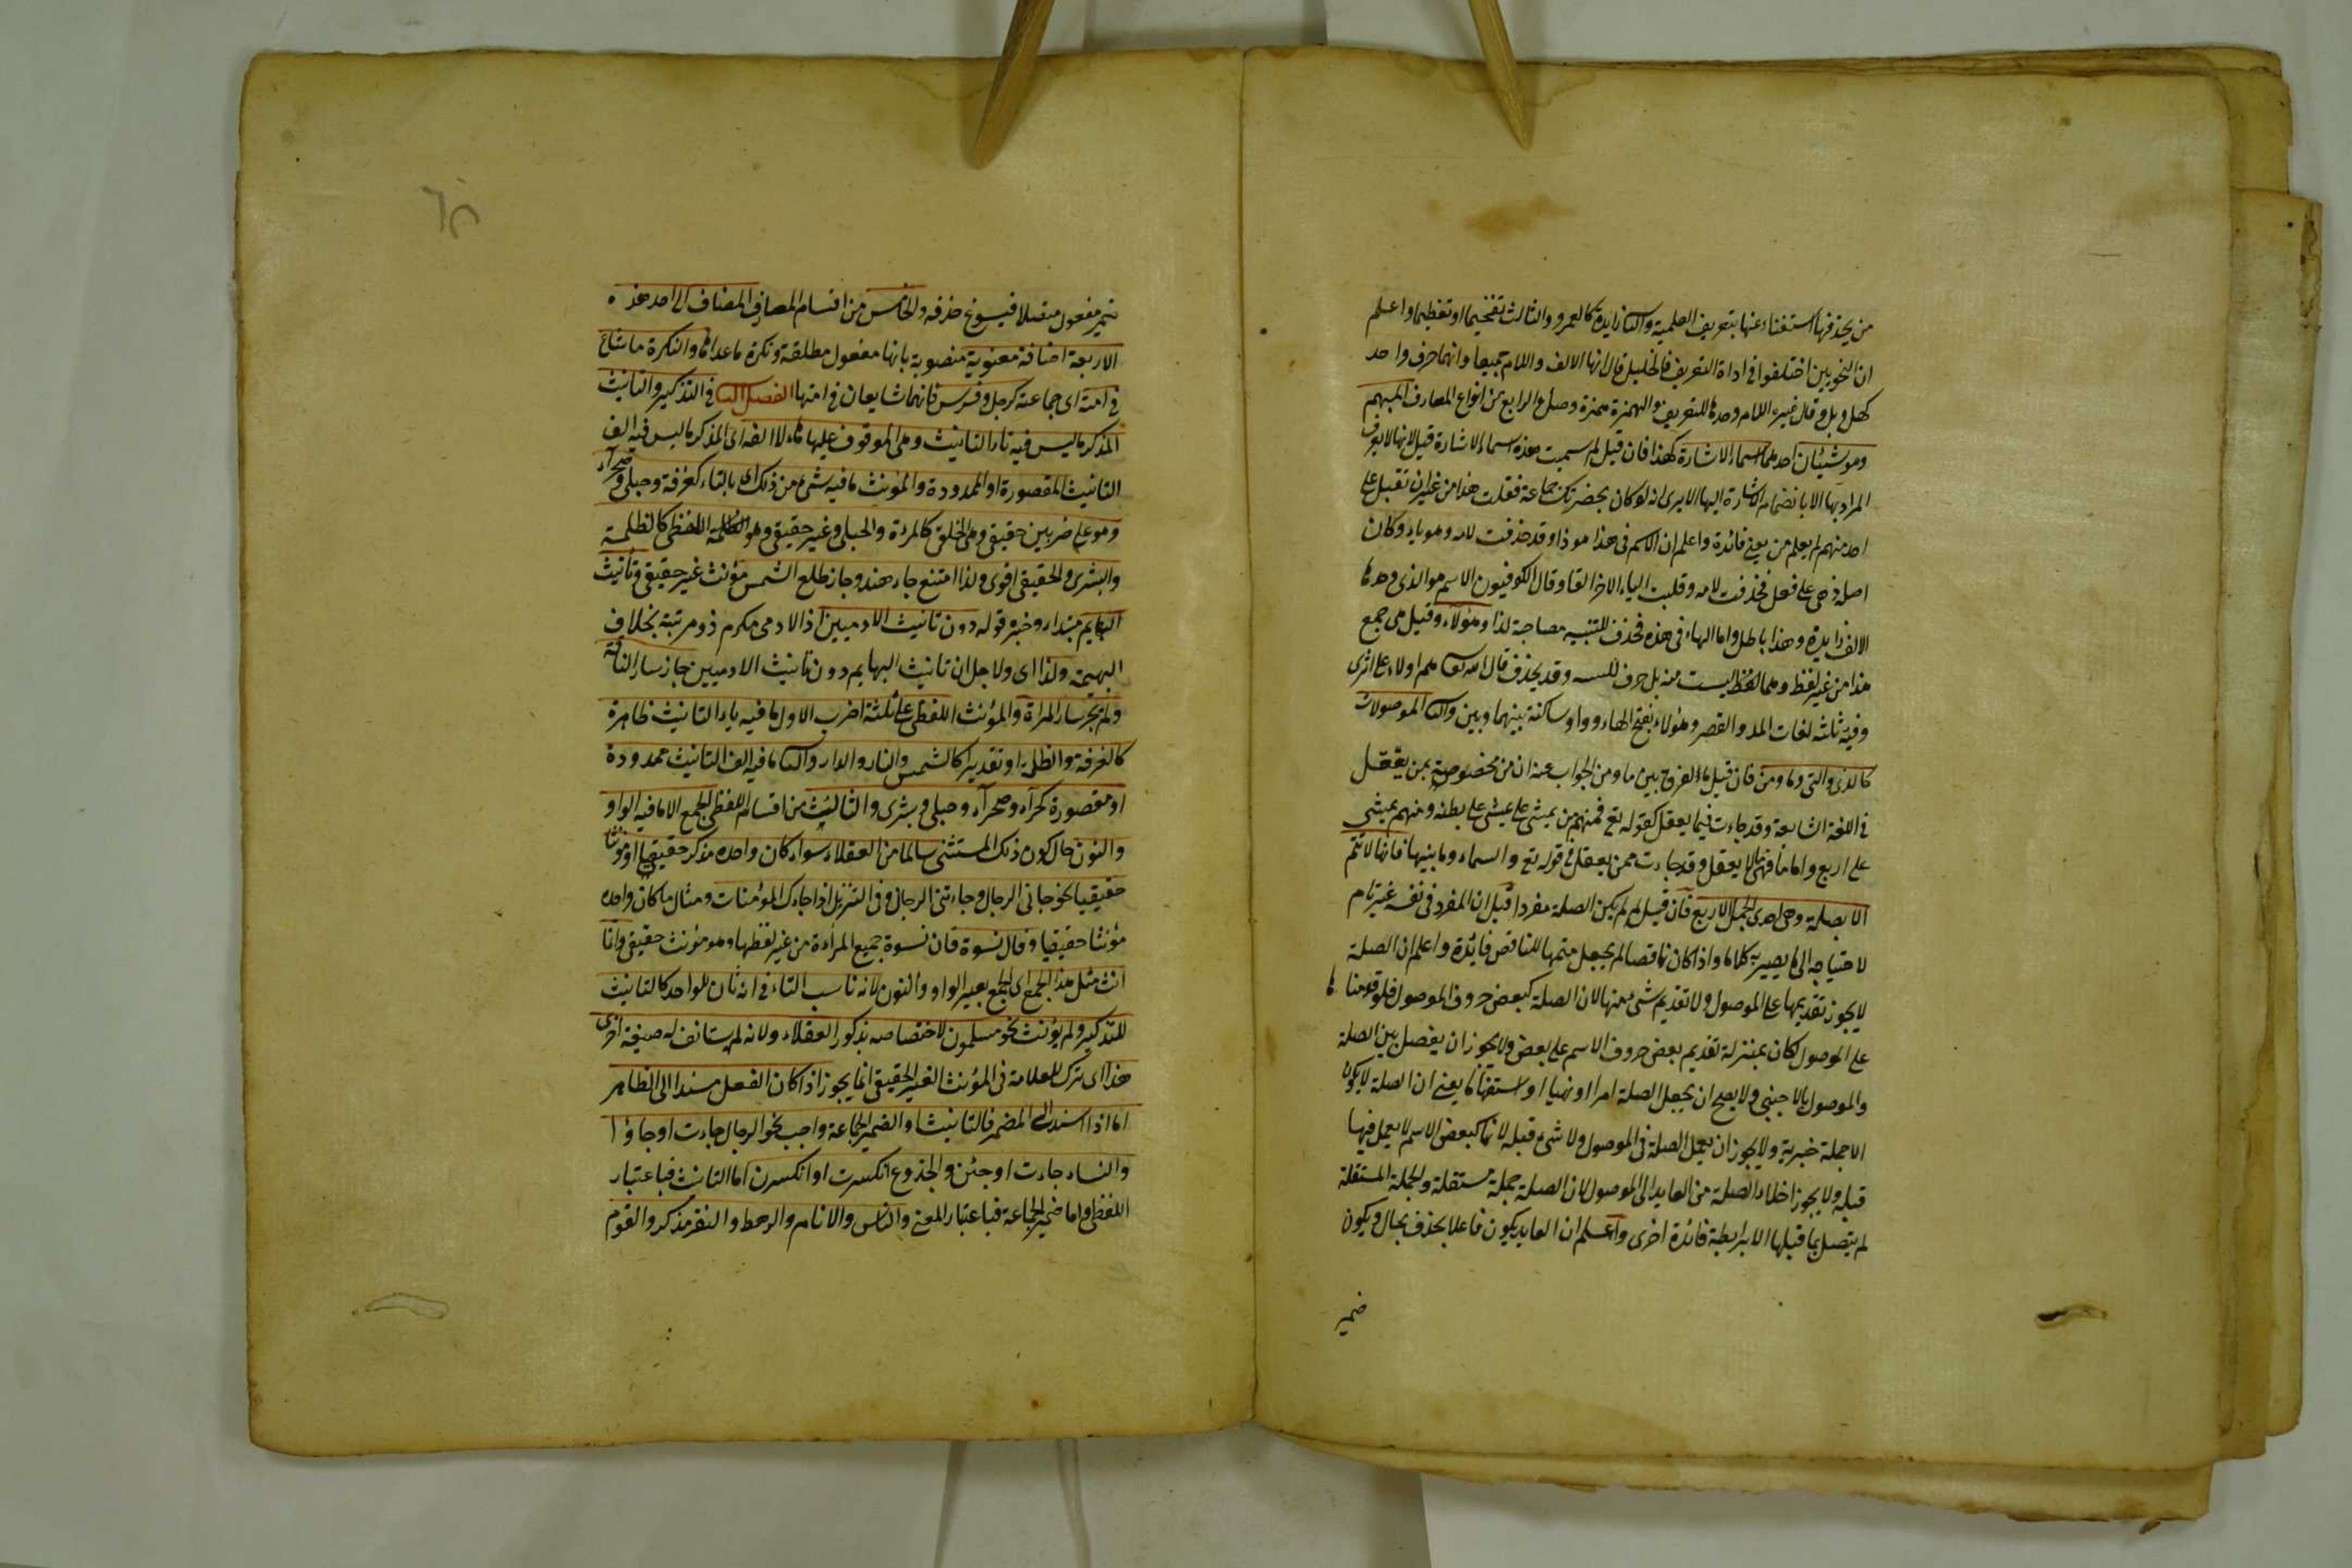 من يحذفها استغناء عنها بتعريف العلمية والثا زايدة كالعمرو والثالث تفخيما او تعظيما واعلم
ان النحويين اختلفوا في اداة التعريف فالخليل قال انها الالف واللام جميعا وانهما حرف واحد
كهل وبل وقال غيره اللام وحدها للتعريف والهمزة همزة وصل والرابع من انواع المعارف المبهم
وهو شيئان احدهما اسماء الاشارة كهذا فان قيل لم سميت هذه اسماء الاشارة قيل لانها لا يعرف
المراد بها الا بانضمام الاشارة اليها الا يرى انه لو كان بحضرتك جماعة فقلت هذا من غير ان تقبل على
احد منهم لم يعلم من يعنى فائدة واعلم ان الاسم في هذا هو ذا وقد حذفت لامه وهو ياء وكان
اصله ذيى على فعل فحذفت لامه وقلبت الياء الاخر الفا وقال الكوفيون الاسم هو الذى وحدها
الالف زايدة وهذا باطل واما الهاء في هذه فحذف للتنبيه مصاحبة لذا وهؤلاء وقيل هى جمع
هذا من غير لفظ وهما لفظ ليست منه بل حرف للتنبيه وقد يحذف قال الله تعالى هم اولاء على اثرى
وفيه ثلثه لغات المد والقصر وهؤلاء بفتح الهاء وواو ساكنة بينهما وبين والثا الموصولات
كالذى والتى وما ومن فان قيل ما الفرق بين ما ومن الجواب عنه ان من مخصوصة بمن يعقل
في اللغة الشايعة وقد جاءت فيما يعقل كقوله تع فمنهم من يمشى على بطنه ومنهم يمشى
على اربع واما ما فهى لما لا يعقل وقد جاءت ممن يعقل في قوله تع والسماء وما بينها فانها لا تتم
الا بصلة وهى احدى الجمل الاربع فان قيل لم لم يكن الصلة مفردا قيل ان المفرد في نفسه غير تام
لاحتياجه الى ما يصير به كلاما واذا كان ناقصا لم يجعل متمما للناقص فائدة واعلم ان الصلة
لا يجوز تقديمها على الموصول ولا تقديم شى منها لان الصلة كبعض حروف الموصول فلو قدمنا ها
على الموصول لكان بمنزلة تقديم بعض حروف الاسم على بعض ولا يجوز ان يفصل بين الصلة
والموصول بالاجنبى ولا يصح ان يجعل الصلة امرا او نهيا او استفهاما يعنى ان الصلة لا يكون
الا جملة خبرية ولا يجوز ان يعمل الصلة في الموصول ولا شى قبله لانها كبعض الاسم لا يعمل فيها
قبله ولا يجوز اخلاء الصلة من العايد الى الموصول لان الصلة جملة مستقلة والجملة المستقلة
لم يتصل بما قبلها الا برابطة فائدة اخرى واعلم ان العايد يكون فاعلا يحذف بحال ويكون
ضمير
ضمير مفعول متصلا فيسوغ حذفه والخامس من اقسام المعارف المضاف الى احد هذه
الاربعة اضافة معنوية منصوبة بانها مفعول مطلقة ونكرة ما عداها والنكرة ما شاع
في امته اى جماعة كرجل وفرس فانهما شايعان في امتها الفصل الثا في التذكير والتانيث
المذكر ما ليس فيه تاء التانيث وهى الموقوف عليها هاء ولا الف اى المذكر ما ليس فيه الف
التانيث المقصورة او الممدودة والمؤنث ما فيه شىء من ذلك اى بالتاء كغرفة وحبلى وصحراء
وهو على ضربين حقيقى وهى الخلقى كالمرءة والحبلى وغير حقيقى وهو اللفظى كالظلمة
والبشرى والحقيقى اقوى ولذا امتنع جاء هند وجاز طلع الشمس مؤنث غير حقيقى وتأنيث
البهايم مبتداء وخبره قوله دون تانيث الادميين اذ الادمى مكرم ذو مرتبة بخلاف
البهيمة ولذا اى ولاجل ان تانيث البهايم دون تانيث الادميين جاز سار الناقة
ولم يجز سار المراة والمؤنث اللفظى على ثلثة اضرب الاول ما فيه ياء التانيث ظاهرة
كالغرفة والظلمة او تقديرا كالشمس والنار والدار والثا ما فيه الف التانيث ممدودة
او مقصورة كحمراء وصحراء وحبلى وبشرى والثالث من اقسام اللفظى الجمع الا ما فيه الواو
والنون حال كون ذلك المستثنى سالما من العقلاء سواء كان واحده مذكر حقيقيا او مؤنثا
حقيقيا نحو جانى الرجال وجاءتنى الرجال وفي التنزيل اذا جاءك المؤمنات ومثال ما كان واحده
مؤنثا حقيقيا وقال نسوة فان نسوة جميع المرأة من غير لفظها وهو مؤنث حقيقى وانما
انث مثل هذا الجمع اى الجمع بغير الواو والنون لانه ناسب التاء في انه ثان للواحد كالتانيث
للتذكير ولم يؤنث نحو مسلمون لاختصاصه بذكور العقلاء ولانه لم يستانف له صيغة اخرى
هذا اى ترك العلامة في المؤنث الغير الحقيقى انما يجوز اذا كان الفعل مسندا الى الظاهر
اما اذا اسند الى المضمر فالتانيث او الضمير الجماعة واجب نحو الرجال جاءت او جاؤا
والنساء جاءت او جئن والجذوع انكسرت او انكسرن اما التانيث فباعتبار
اللفظ واما ضمير الجماعة فباعتبار المعنى والناس والانام والرهط والنفر مذكر والقوم